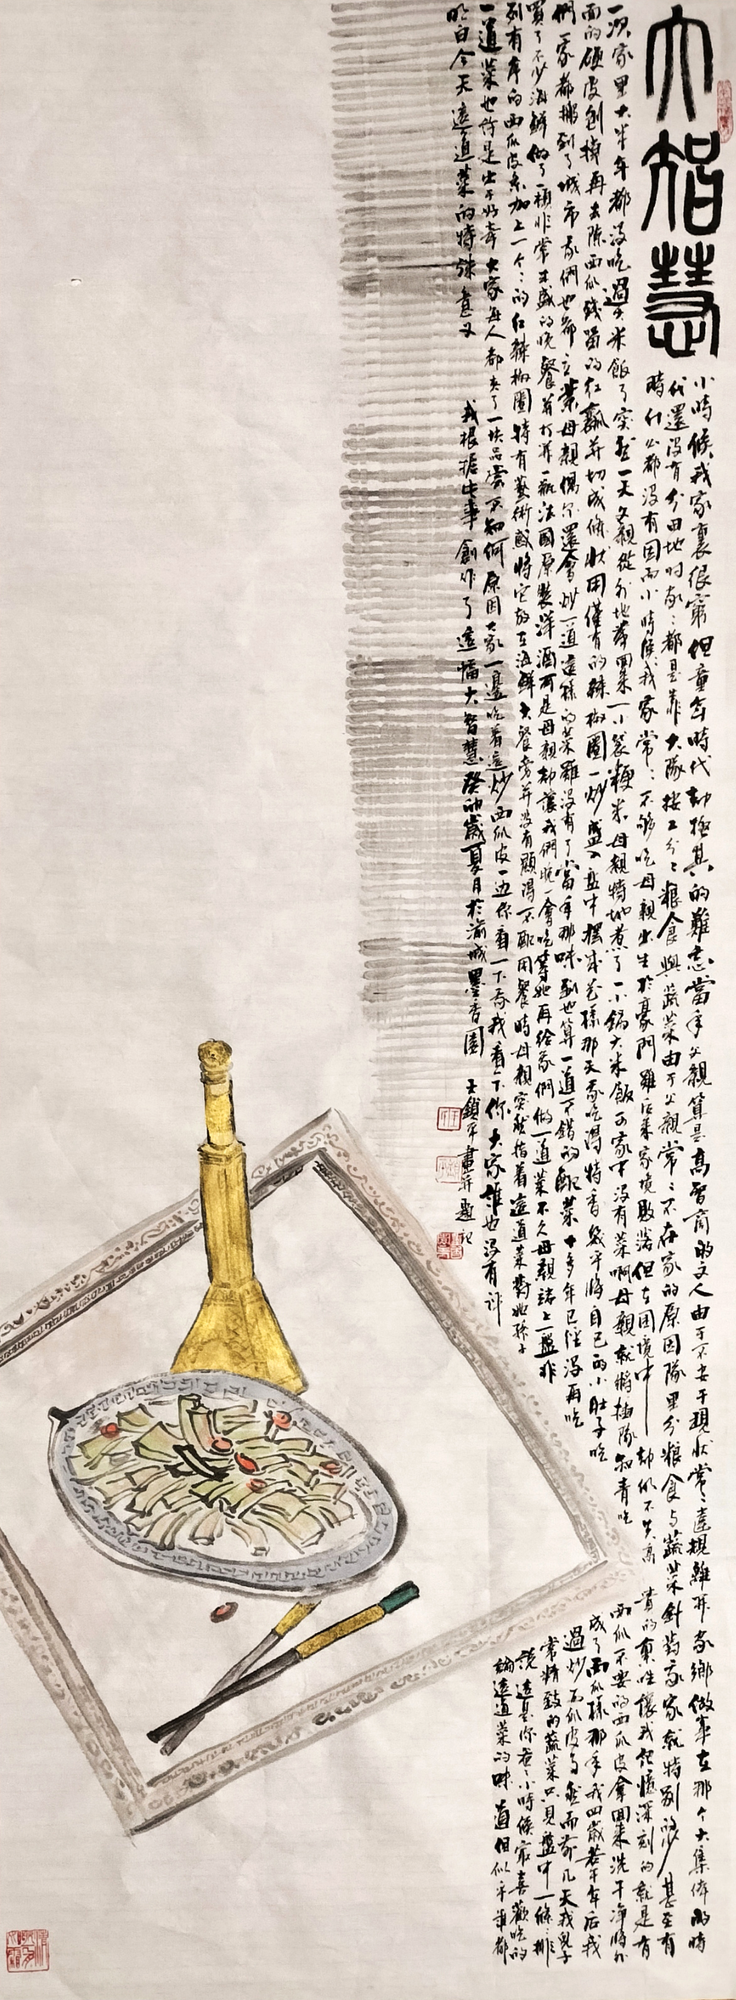 大智慧
小時候我家裏很窮但童年時代却極其的難忘當年父親算是高智商的文人由于不安于現狀常〻違規離開家鄉做事在那个大集体的時
代還没有分田地时家〻都是靠大隊按工分〻粮食與蔬菜由于父親常〻不在家的原因隊里分粮食与蔬菜針對我家就特别的少甚至有
時什么都没有因而小時候我家常〻不够吃母親出生於豪門雖后来家境敗落但在困境中却仍不失高貴的真性讓我記憶深刻的就是有
一次家里大半年都没吃過大米飯了突然一天父親從外地帶回來一小袋粳米母親特地煮了一小鍋大米飯可家中没有菜啊母親就將插隊知青吃
西瓜不要的西瓜皮拿回来洗干净將外
面的硬皮刨掉再去除西瓜殘留的红瓤并切成條狀用僅有的辣椒圈一炒盛入盘中擺成花樣那天我吃得特香幾乎將自己的小肚子吃
成了西瓜樣那年我四歲若干年后我
們一家都搬到了城市我們也都立業母親偶尔還會炒一道這樣的菜雖没有了當年那味到也算一道不錯的配菜十多年已經没再吃
過炒西瓜皮了然而前几天我兒子
買了不少海鮮做了一頓非常丰盛的晚餐并打开一瓶法國原裝洋酒可是母親却讓我們晚一會吃等她再给我們做一道菜不久母親端上一盤非
常精致的蔬菜只見盘中一條〻排
列有序的西瓜皮条加上一个〻的红辣椒圈特有藝術感將它放在海鮮大餐旁并没有顯得不配用餐時母親突然指着這道菜對她孫子
說這是你爸小時候最喜歡吃的
一道菜也許是出于好奇大家每人都夹了一块品尝不知何原因大家一邊吃着這炒西瓜皮一边你看一下我我看一下你大家誰也没有评
論這道菜的味道但似乎誰都
明白今天這道菜的特殊意义
我根据此事創作了這幅大智慧癸卯歲夏月於渝城墨香園
王鎖平畫并題记